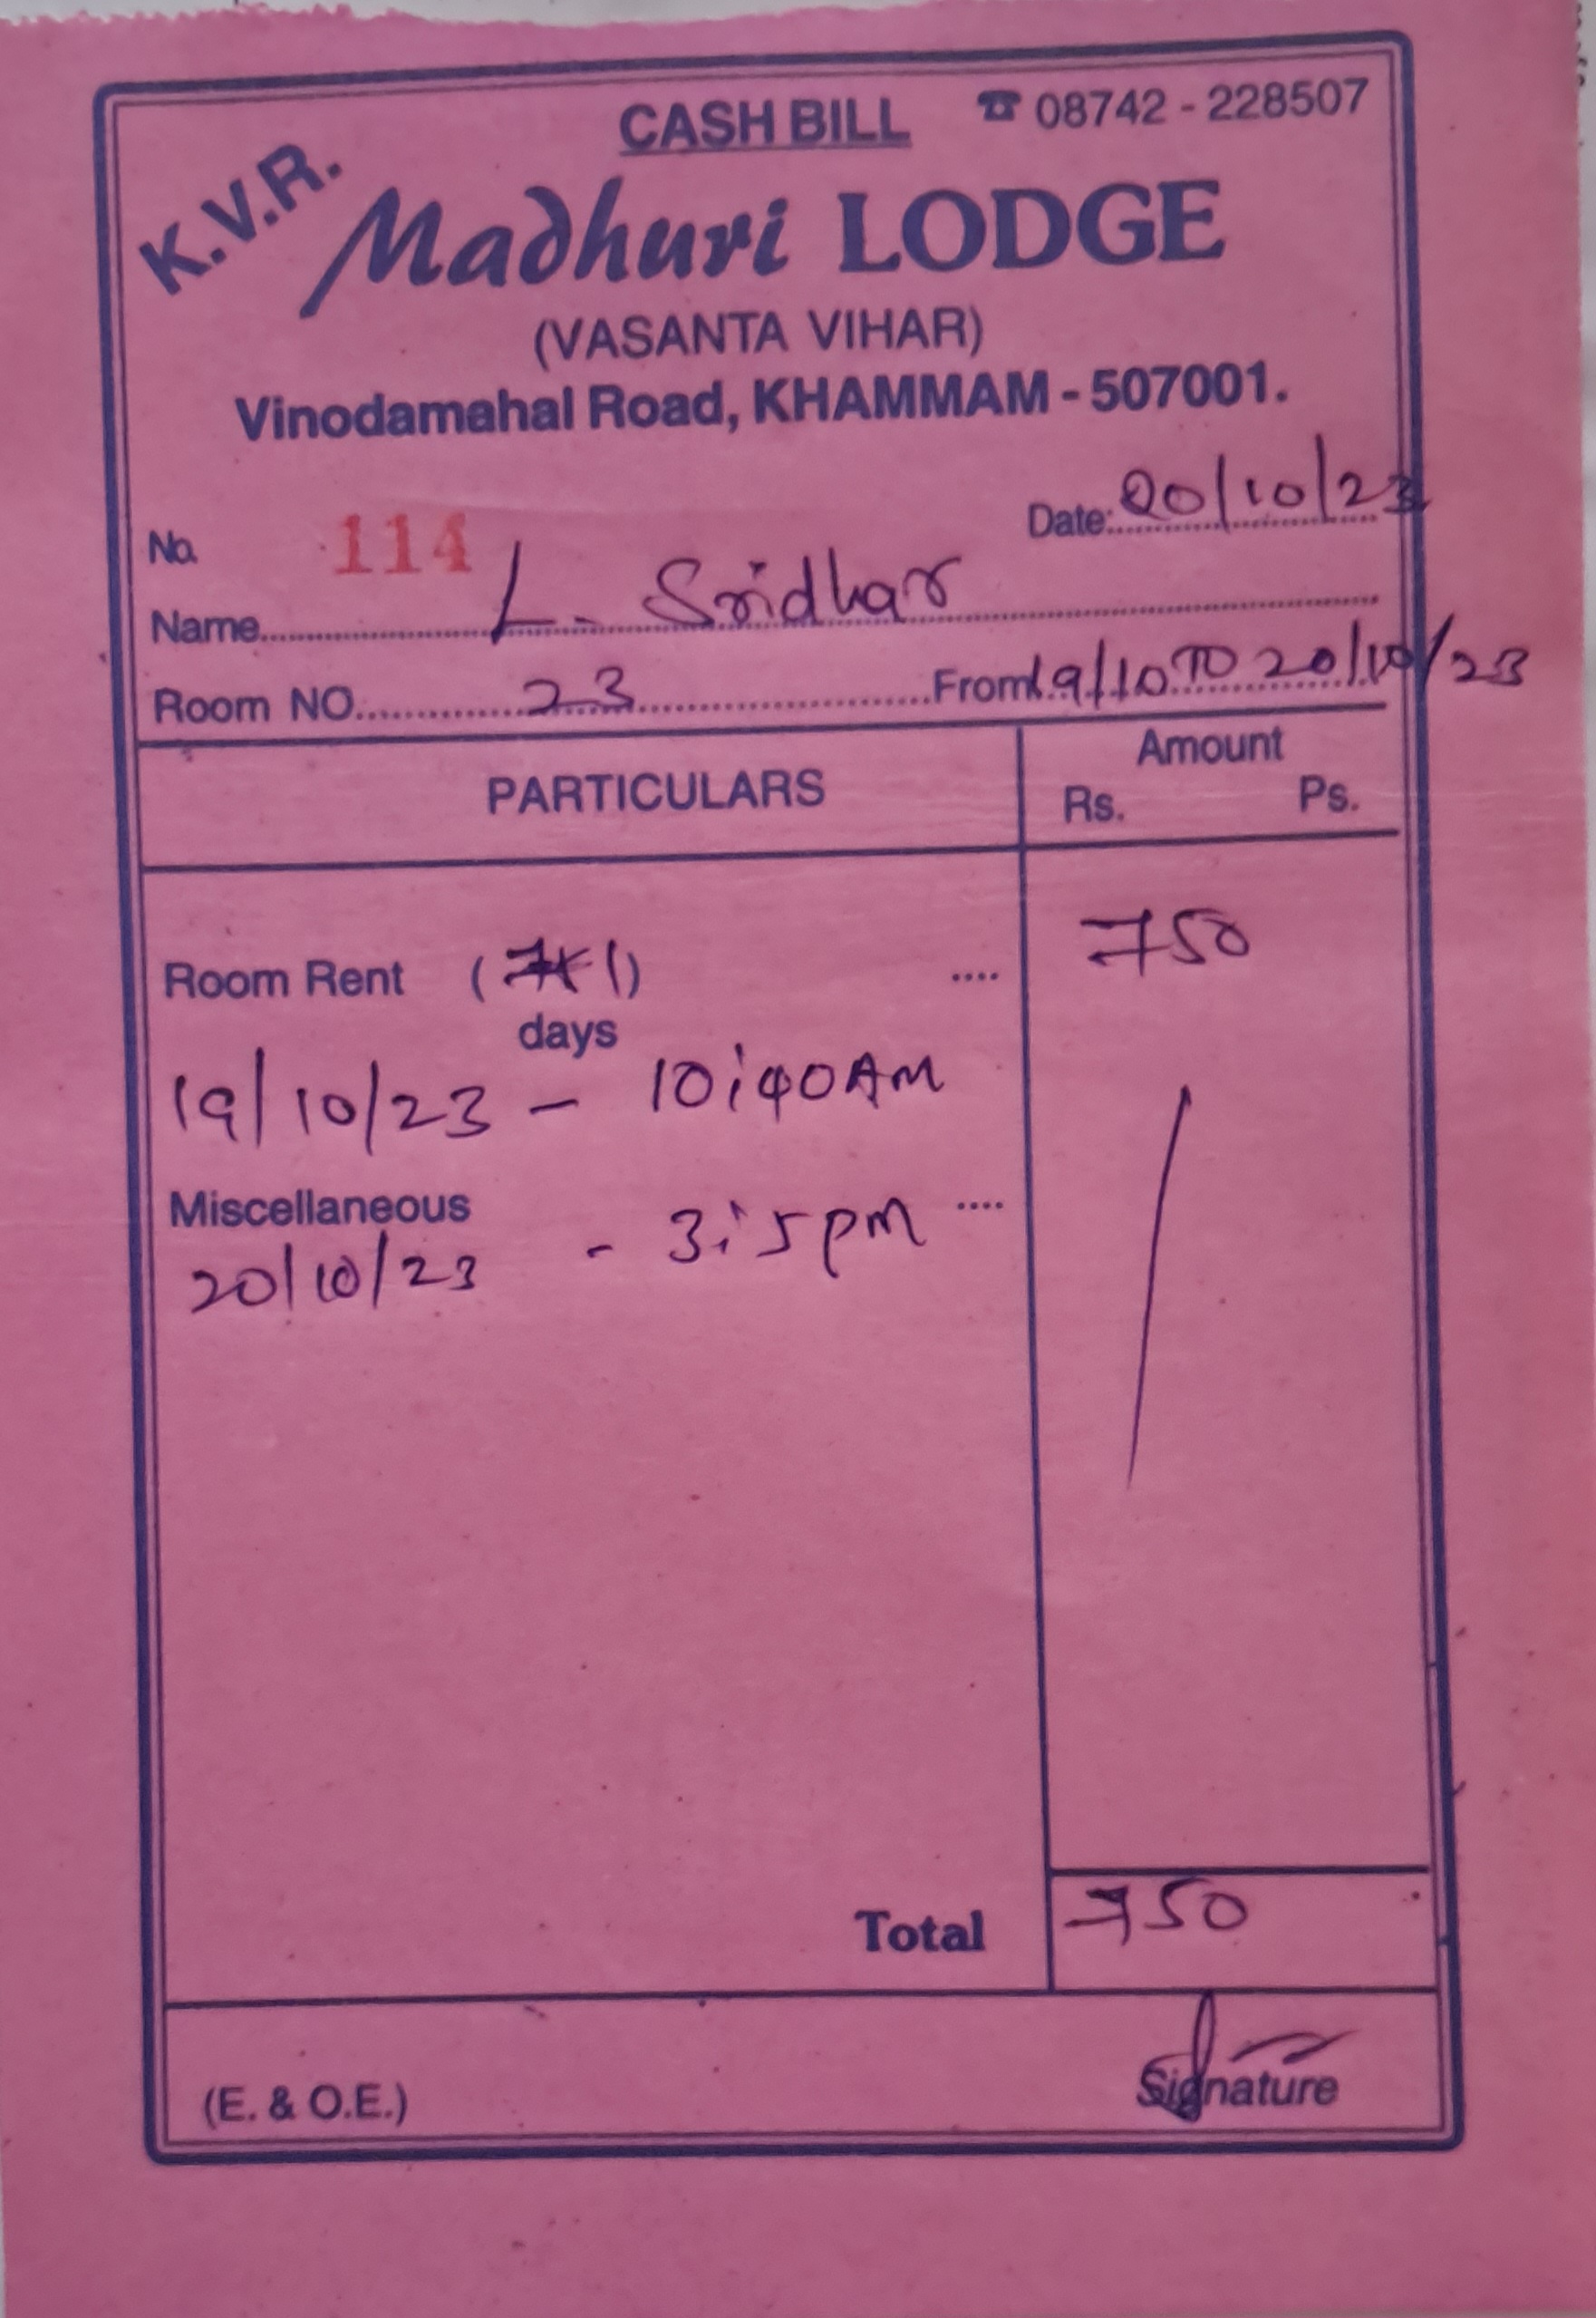 CASH BILL ☎ 08742 - 228507
K.V.R. Madhuri LODGE
(VASANTA VIHAR)
Vinodamahal Road, KHAMMAM - 507001.
No. 114 Date: 20/10/23
Name L. Sridhar
Room NO. 23 From 19/10 TO 20/10/23
PARTICULARS Amount
Rs. Ps.
Room Rent ( 1) .... 750
days
19/10/23 - 10:40 AM
Miscellaneous ....
20/10/23 - 3:5 pm
Total 750
(E. & O.E.) Signature